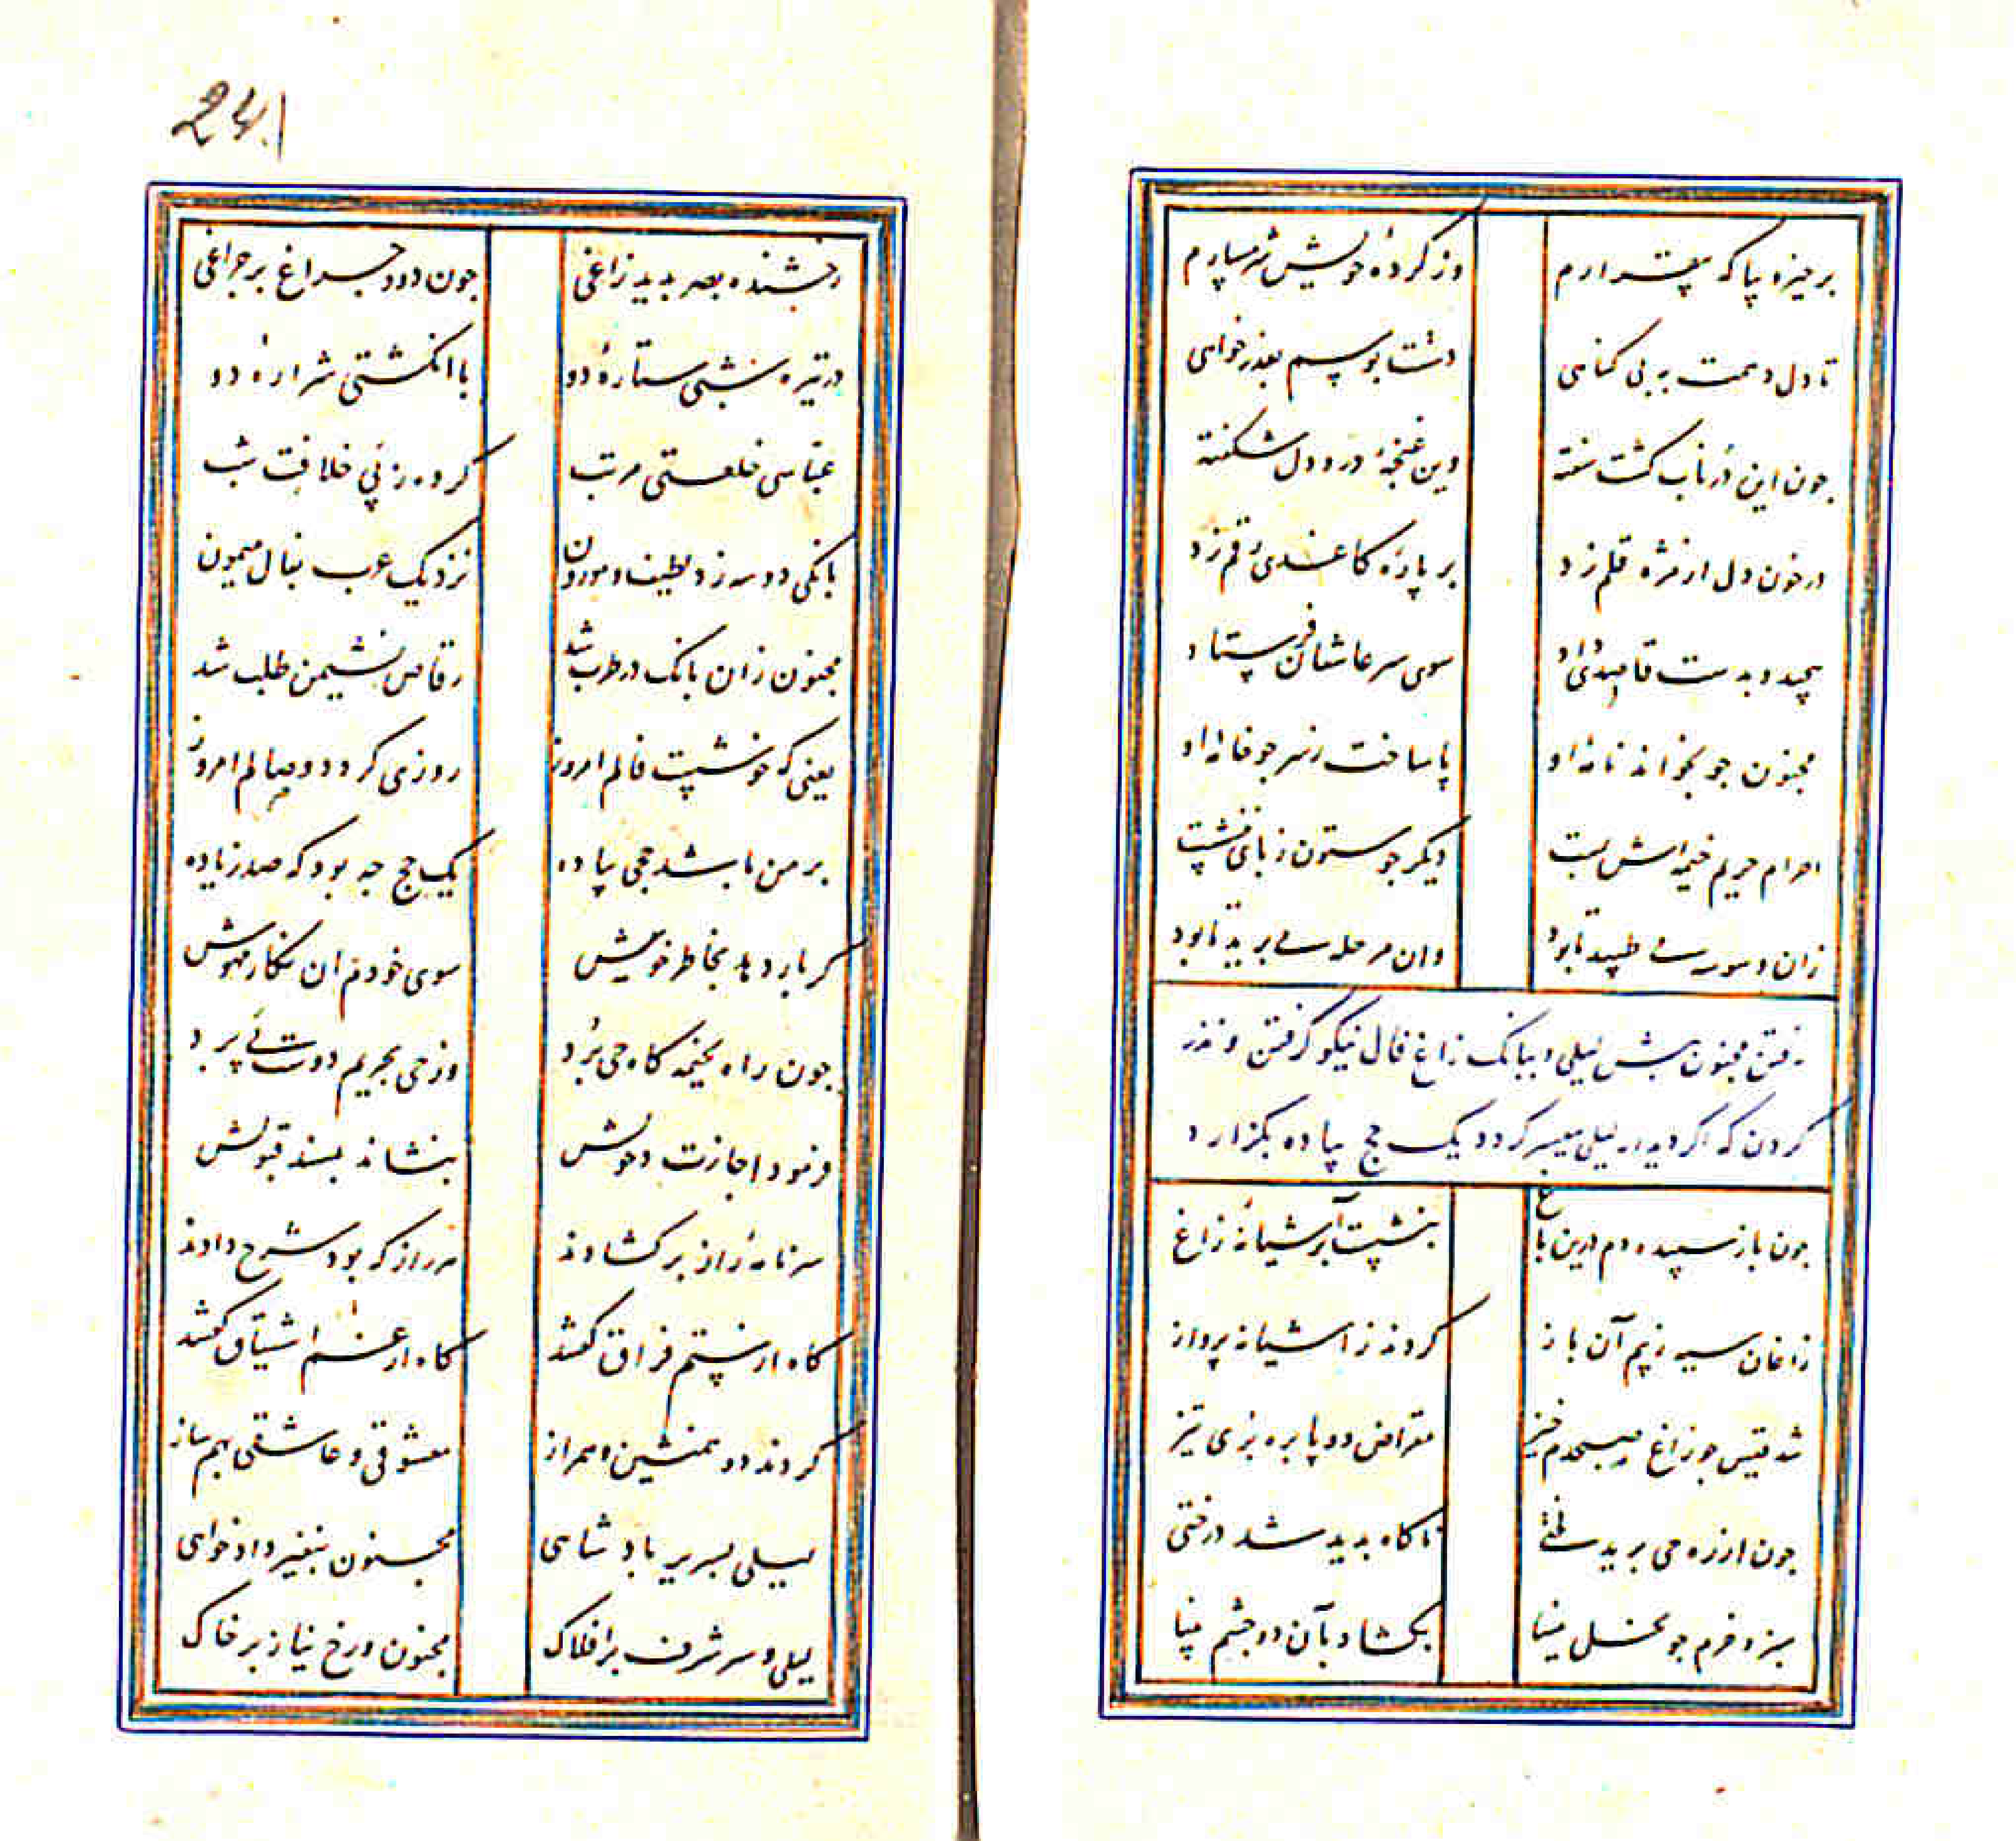 برخیز و بیا که بیقرارم وز کردهٔ خویش شرمسارم
تا دل دهمت به بی کناهی دستت بوسم بعذرخواهی
چون این در ناب کشت سفته وین غنچهٔ درد دل شکفته
در خون دل از مژه قلم زد بر پارهٔ کاغذی رقم زد
پیچید و بدست قاصدی داد سوی سر عاشقان فرستاد
مجنون چو بخواند نامهٔ او پا ساخت ز سر چو خامهٔ او
احرام حریم خیمه‌اش بست دیکر چو ستون ز پای ننشست
زان وسوسه می طپید تا بود وان مرحله می برید تا بود
رفتن مجنون پیش لیلی و ببانک زاغ فال نیکو کرفتن و نذر
کردن که اکر دیدار لیلی میسر کردد یک حج پیاده بکزارد
چون باز سپیده دم درین باغ بنشست بر آشیانهٔ زاغ
زاغان سیه ز بیم آن باز کردند ز آشیانه پرواز
شد قیس چو زاغ صبحدم خیز مقراض دو پا بره بری تیز
چون از ره می برید لختی ناکاه بدید شد درختی
سبز و خرم چو نخل مینا بکشاد بآن دو چشم بینا
241
رخشنده بصر بدید زاغی چون دود چراغ بر چراغی
در تیره شبی ستارهٔ دو با انکشتی شرارهٔ دو
عباسی خلعتی مرتب کرده ز پی خلافت شب
بانکی دو سه زد لطیف و موزون نزدیک عرب بفال میمون
مجنون زان بانک در طرب شد رقاص نشیمن طلب شد
یعنی که خوشست فالم امروز روزی کردد وصالم امروز
بر من باشد حجی پیاده یک حج چه بود که صد زیاده
کر بار دهد بخاطر خویش سوی خودم ان نکار مهوش
چون راه بخیمه کاه حی برد وز حی بحریم دوست پی برد
فرمود اجازت دخولش بنشاند بمسند قبولش
سر نامهٔ راز برکشادند هر راز که بود شرح دادند
کاه از ستم فراق کفتند کاه از غم اشتیاق کفتند
کردند دو همنشین و همراز معشوقی و عاشقی بهم ساز
لیلی بسریر پادشاهی مجنون بنفیر دادخواهی
لیلی و سر شرف بر افلاک مجنون و رخ نیاز بر خاک